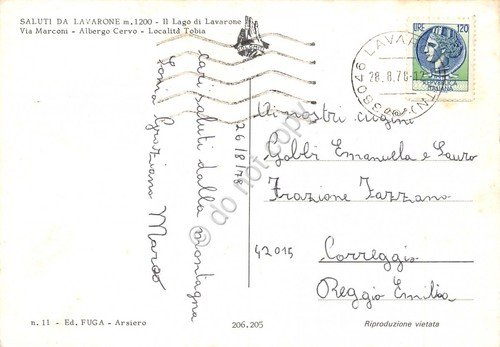 SALUTI DA LAVARONE m. 1200 - Il Lago di Lavarone
Via Marconi - Albergo Cervo - Località Tobia
LIRE 120
REPUBBLICA
ITALIANA
38046 LAVARONE (TN)
28.8.78-12
26/8/78
cari saluti dalla montagna
Sonia Graziano Marco
Ai nostri cugini
Gobbi Emanuella e Lauro
Frazione Fazzano
42015 Correggio
Reggio Emilia
n. 11 - Ed. FUGA - Arsiero
206.205
Riproduzione vietata
do not copy